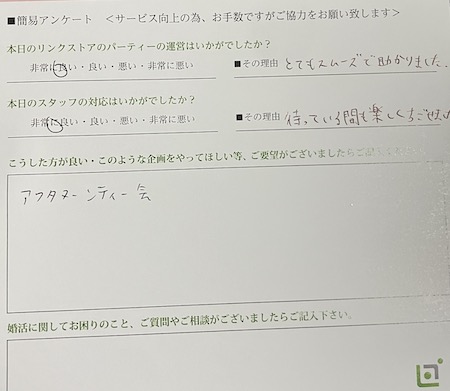 ■簡易アンケート <サービス向上の為、お手数ですがご協力をお願い致します>
本日のリンクストアのパーティーの運営はいかがでしたか?
非常に良い・良い・悪い・非常に悪い ■その理由 とてもスムーズで助かりました。
本日のスタッフの対応はいかがでしたか?
非常に良い・良い・悪い・非常に悪い ■その理由 待っている間も楽しく
こうした方が良い・このような企画をやってほしい等、ご要望がございましたらご記入下さい
アフタヌーンティー会
婚活に関してお困りのこと、ご質問やご相談がございましたらご記入下さい。